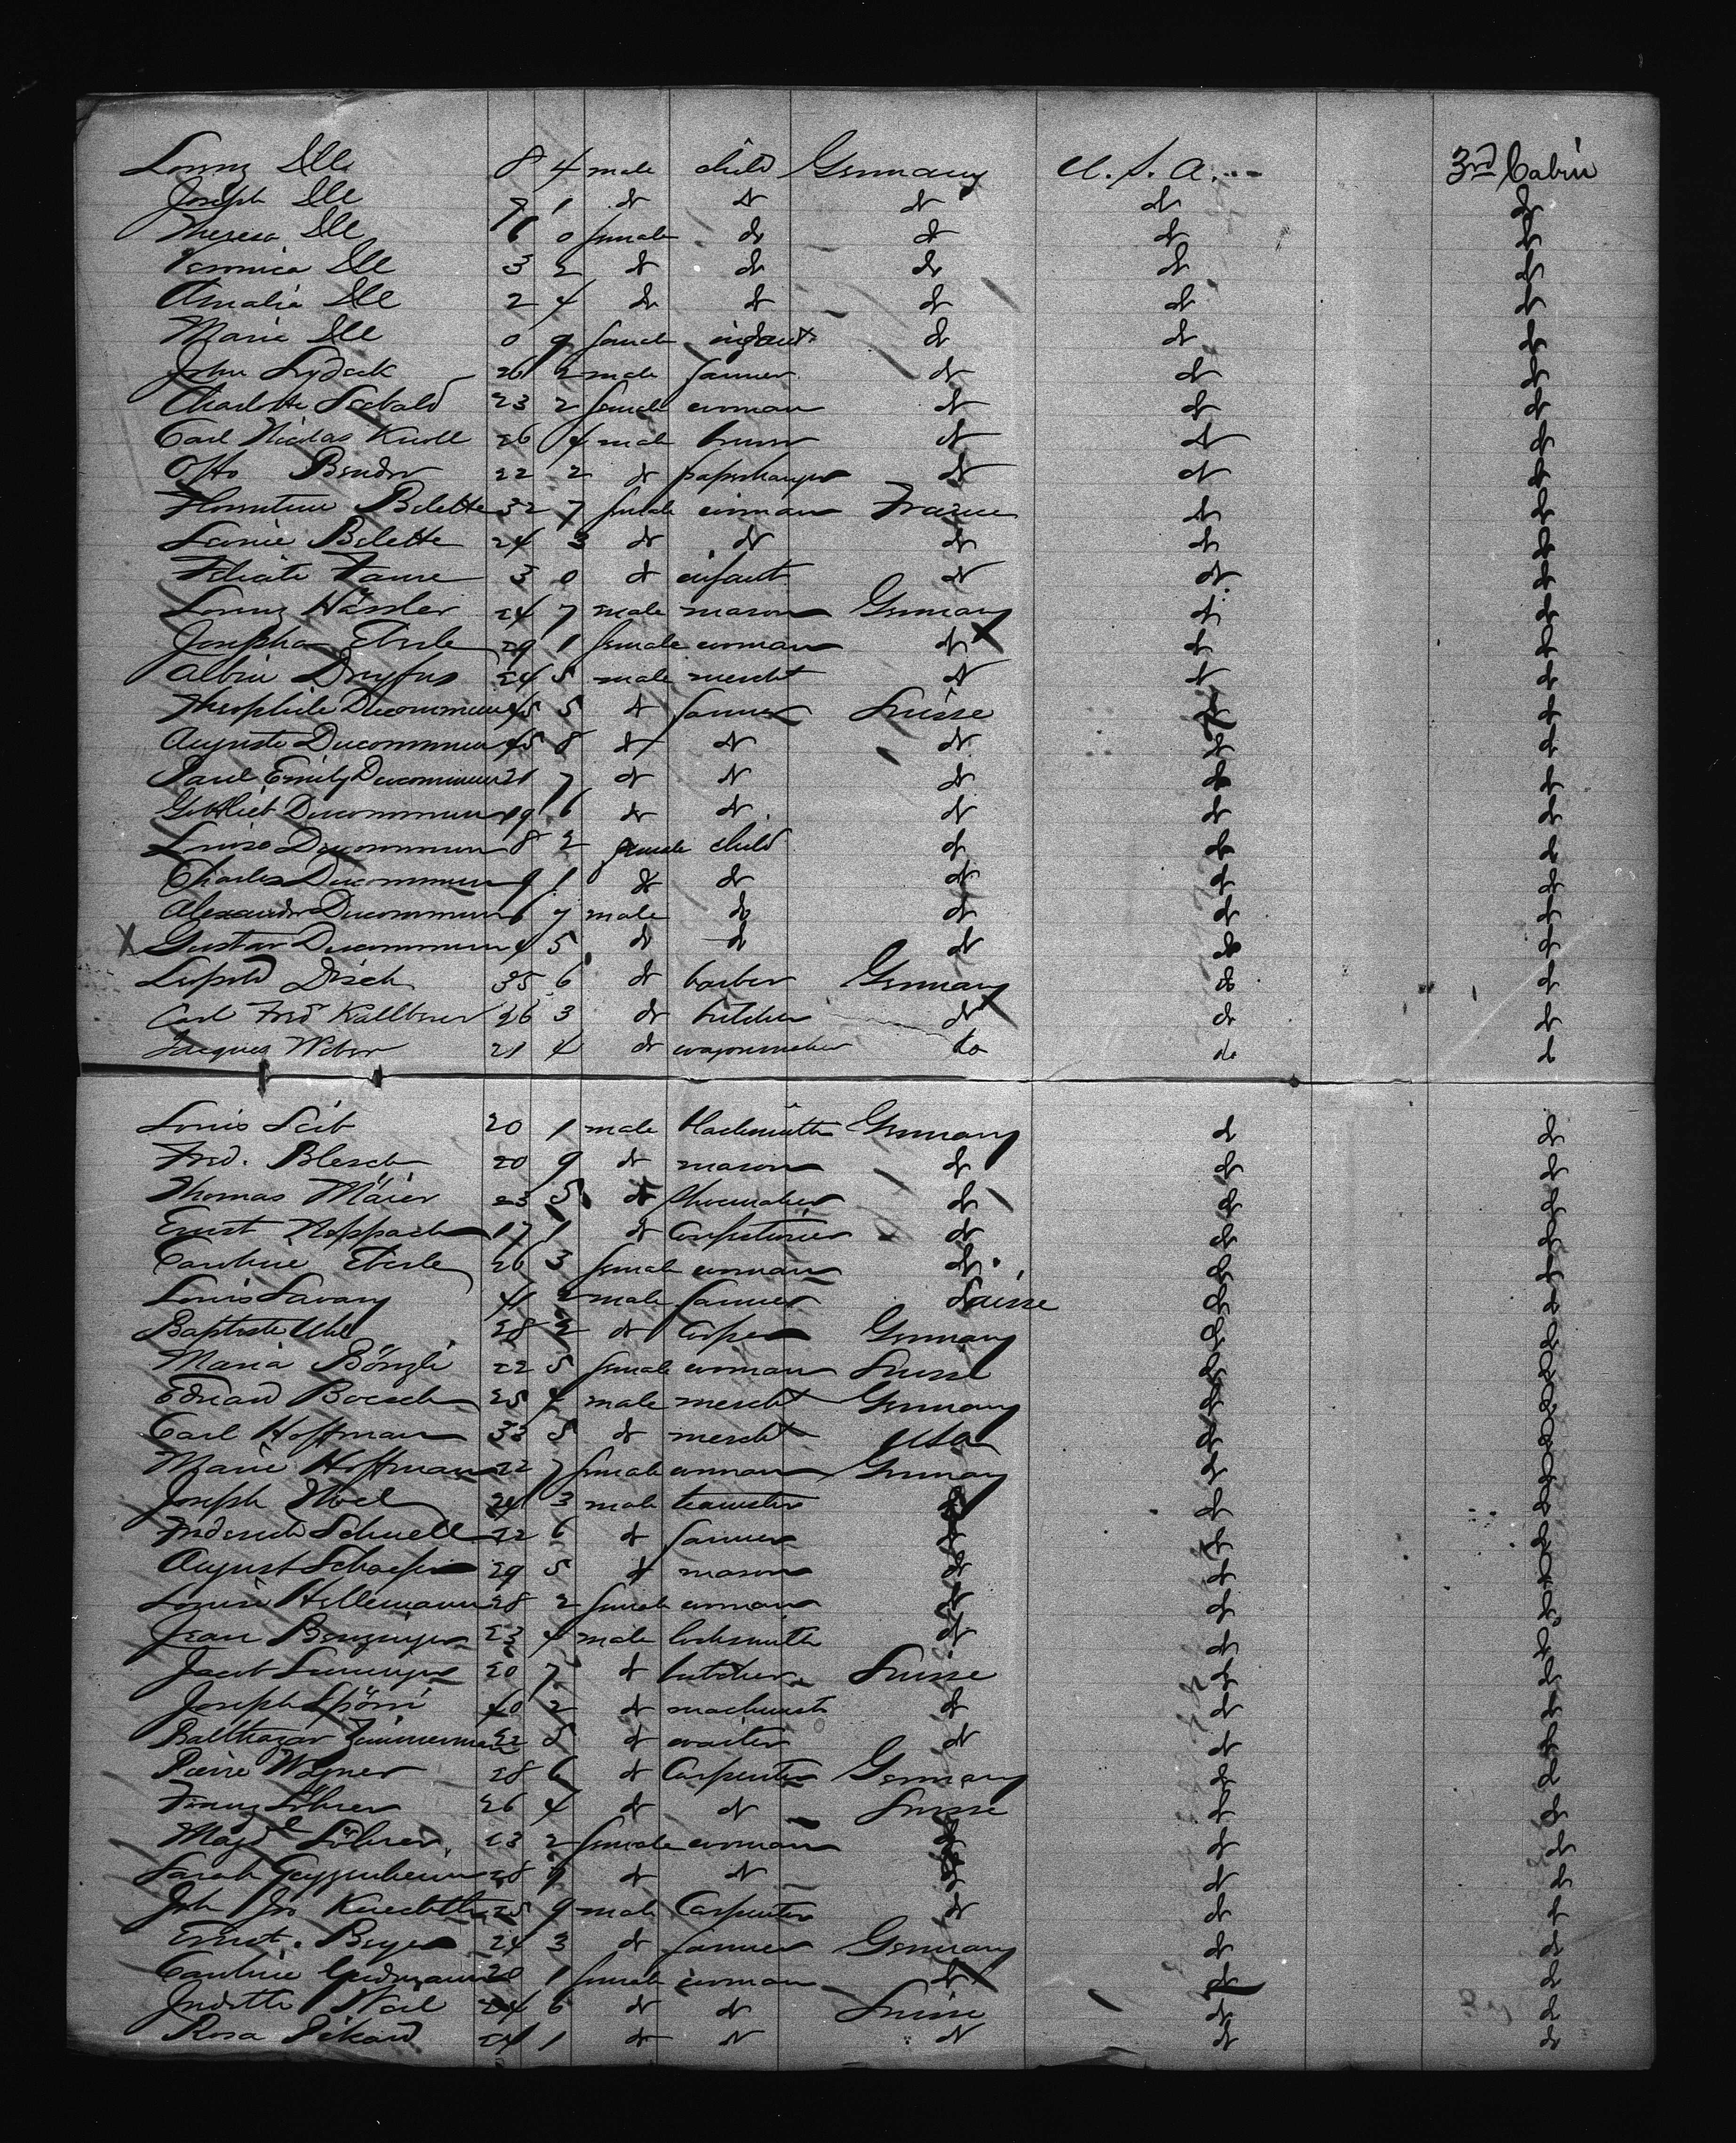 Lorenz Ill 8 4 male child Germany U. S. A. 3rd Cabin
Joseph Ill 7 1 do do do do do
Theresa Ill 6 0 female do do do do
Veronica Ill 3 2 do do do do do
Amalia Ill 2 4 do do do do do
Marie Ill 0 9 female infant do do do
John 26 2 male farmer do do do
Charlotte Sebald 23 2 female woman do do do
Carl Nicolas Knoll 26 4 male do do do
Otto Bender 22 2 do paperhanger do do do
Florentine Belette 32 7 female woman France do do
Leonie Belette 24 3 do do do do do
Faure 3 0 do infant do do do
Lorenz Hässler 24 7 male mason Germany do do
Josepha Eberle 29 1 female woman do do do
Albin Dreyfus 24 5 male mercht do do do
Theophile Ducommun 45 5 do farmer Suisse do do
Auguste Ducommun 45 8 do do do do do
Paul Emily Ducommun 21 7 do do do do do
Gottlieb Ducommun 19 6 do do do do do
Louise Ducommun 8 2 female child do do do
Charles Ducommun 9 1 do do do do do
Alexander Ducommun 6 7 male do do do do
X Gustav Ducommun 4 5 do do do do do
Leopold Disch 35 6 do barber Germany do do
Carl Fred Kallberer 26 3 do butcher do do do
Jacques Weber 21 4 do wagonmaker do do do
Louis Leib 20 1 male blacksmith Germany do do
Fred. Blesch 20 9 do mason do do do
Thomas Mäier 23 5 do shoemaker do do do
Ernst 17 1 do do do do
Caroline Eberle 26 3 female woman do do do
Louis Savary 41 2 male farmer Suisse do do
Baptiste Uhl 28 2 do Germany do do
Maria Bönzli 22 5 female woman Suisse do do
Edward Boesch 25 4 male mercht Germany do do
Carl Hoffman 33 5 do mercht USA do do
Marie Hoffman 22 7 female woman Germany do do
Joseph 24 3 male teamster do do do
Frederick Schnell 22 6 do farmer do do do
August Schaefer 29 5 do mason do do do
Louise Hellemann 28 2 female woman do do do
Jean Benzinger 23 4 male locksmith do do do
Jacob 20 7 do butcher Suisse do do
Joseph Spörri 40 2 do machinist do do do
Balthazar Zimmerman 22 5 do waiter do do do
Pierre Wagner 28 6 do Carpenter Germany do do
Franz Löhrer 26 4 do do Suisse do do
Magd Löhrer 23 2 female woman do do do
Sarah Guggenheim 28 9 do do do do do
Joh Jos 25 9 male Carpenter do do do
Ernst. Beyer 24 3 do farmer Germany do do
Caroline 20 1 female woman do do do
Judith 24 6 do do Suisse do do
Rosa Pikard 24 1 do do do do do